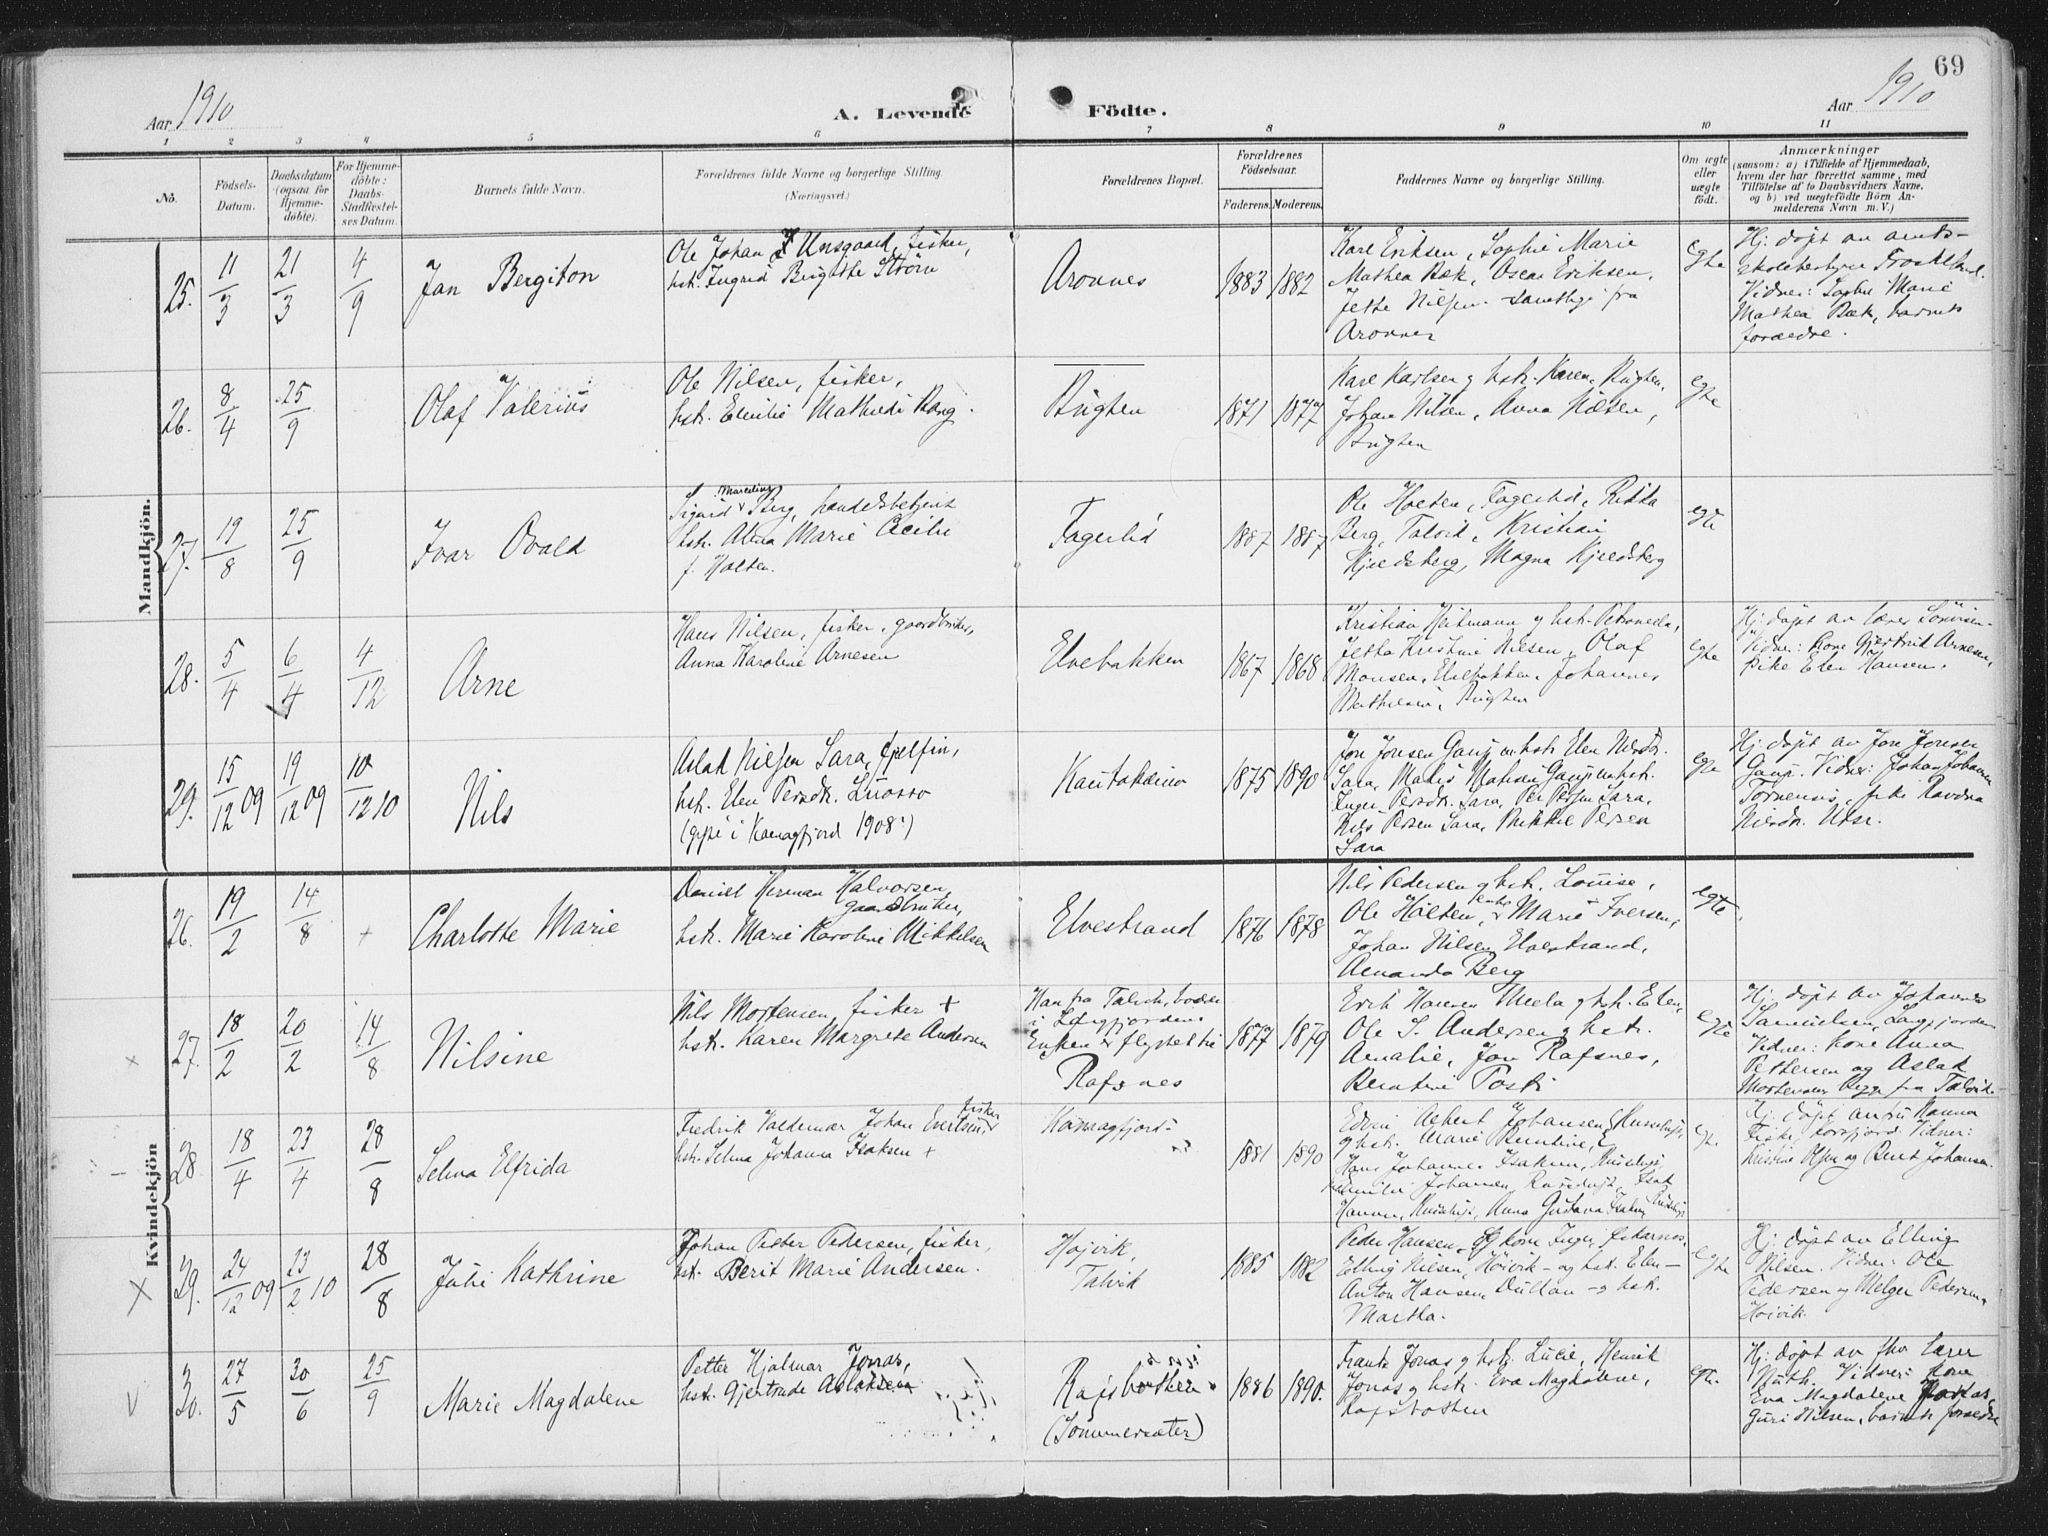 69
Aar 1910
A. Levende Födte.
Aar 1910
1 2 3 4 5 6 7 8 9 10 11
No.
Födsels-Datum.
Daabsdatum (ogsaa for Hjemmedöbte).
For Hjemmedöbte: Daabs Stadfæstelses Datum.
Barnets fulde Navn.
Forældrenes fulde Navne og borgerlige Stilling.
(Næringsvei.)
Forældrenes Bopæl.
Forældrenes Födselsaar.
Faderens. Moderens.
Faddernes Navne og borgerlige Stilling.
Om ægte eller uægte födt.
Anmærkninger
(saasom: a) i Tilfælde af Hjemmedaab,
hvem der har forrettet samme, med
Tilföielse af to Daabsvidners Navne,
og b) ved uægtefödte Börn Anmelderens Navn m. V.)
Mandkjön.
25. 11/3 21/3 4/9 Jan Bergiton
Ole Johan Unsgaard, fisker,
hst. Ingrid Birgitte Ström
Aronnes
1883 1882
Karl Eriksen, Sophie Marie
Mathea Bæk, Oscar Eriksen,
Jette Nilsen samtlige fra
Aronnes
egte
Hj. döpt av amts-
skolebestyrer
Vidner: Sophie Marie
Mathea Bæk, barnets
forældre.
26. 8/4 25/9 Olaf Valerius
Ole Nilsen, fisker,
hst. Emilie Mathilde Bang.
Bugten
1871 1877
Karl Karlsen og hst. Karen, Bugten,
Johan Nilsen, Anna Nilsen,
Bugten
egte
27. 19/8 25/9 Ivar Ovald
Sigurd Marcelius Berg, handelsbetjent
hst. Alma Marie Cecilie
f. Holten.
Fagerlid
1887 1887
Ole Holten, Fagerlid,
Berg, Talvik, Kristian
Kjeldsberg, Magna Kjeldsberg
egte
28. 5/4 6/4 4/12 Arne
Hans Nilsen, fisker, gaardbruker,
Anna Karoline Arnesen
Elvebakken
1867 1868
Kristian Heitmann og hst. Petronella,
Jetta Kristine Nilsen, Olaf
Monsen, Elvebakken, Johannes
Mathisen, Bugten
egte
Hj. döpt av lærer
Vidner: Kone Gjertrud Arnesen,
pike Elen Hansen.
29. 15/12 09 19/12 09 10/12 10 Nils
Aslak Nilsen Sara, fjelfin,
hst. Elen Persdtr. Luosso
(gift i Kaafjord 1908?)
Kautokeino
1875 1890
Jon Jonsen Gaup m. hst. Elen Nilsdtr.
Sara, Matis Matisen Gaup m. hst.
Inger Persdtr. Sara, Per Persen Sara,
Nils Persen Sara, Mikkel Persen
Sara
egte
Hj. döpt av Jon Jonsen
Gaup. Vidner: Johan Johansen
Tornensis, pike Ravdna
Nilsdtr. Utsi.
Kvindekjön
26. 19/2 14/8 + Charlotte Marie
Daniel Herman Halvorsen,
gaardbruker,
hst. Marie Karoline Mikkelsen
Elvestrand
1876 1878
Nils Pedersen og hst. Louise,
Ole Holten, Marie Iversen,
Johan Nilsen, Elvestrand,
Amanda Berg
egte.
x 27. 18/2 20/2 14/8 Nilsine
Nils Mortensen, fisker +
hst. Karen Margrete Andersen
Han fra Talvik,
i Langfjorden.
Enken flyttet til
Rafsnes
1877 1879
Erik Hansen Meela og hst. Elen,
Ole S. Andersen og hst.
Amalie, Jon Rafsnes,
Berntine Posti
egte
Hj. döpt av Johannes
Samuelsen, Langfjorden
Vidner: Kone Anna
Pettersen og Aslak
Mortensen fra Talvik.
28. 18/4 23/4 28/8 Selma Elfrida
Fredrik Valdemar Johan Evertsen, fisker
hst. Selma Johanna Isaksen +
1881 1890
Edvin Albert Johansen,
og hst. Marie Berntine,
Hans Johannes Isaksen,
Emilie Johansen, Isak
Hansen, Anna Gustava Isaksen,
egte
Hj. döpt av fru Hanna
Fisk, Korsfjord. Vidner:
Kristine Olsen og Bent Johansen.
X 29. 24/12 09 23/2 10 28/8 Julie Kathrine
Johan Peder Pedersen, fisker,
hst. Berit Marie Andersen.
Højvik,
Talvik
1885 1882
Peder Hansen, kone Inger,
Elling Nilsen, Höivik - og hst. Elen -
Anton Hansen, - og hst.
Martha.
egte
Hj. döpt av Elling
Nilsen. Vidner: Ole
Pedersen og Pedersen,
Höivik.
V 30. 27/5 30/6 25/9 Marie Magdalene
Petter Hjalmar Jonas,
hst. Gjertrude Aslaksen
Rafsbotten
(Sommersæter)
1886 1890.
Frantz Jonas og hst. Lucie, Henrik
Jonas og hst. Eva Magdalene,
Rafsbotten
egte.
Hj. döpt av fhv. lærer
Vidner: kone
Eva Magdalene Jonas,
Guri Nilsen, barnets forældre